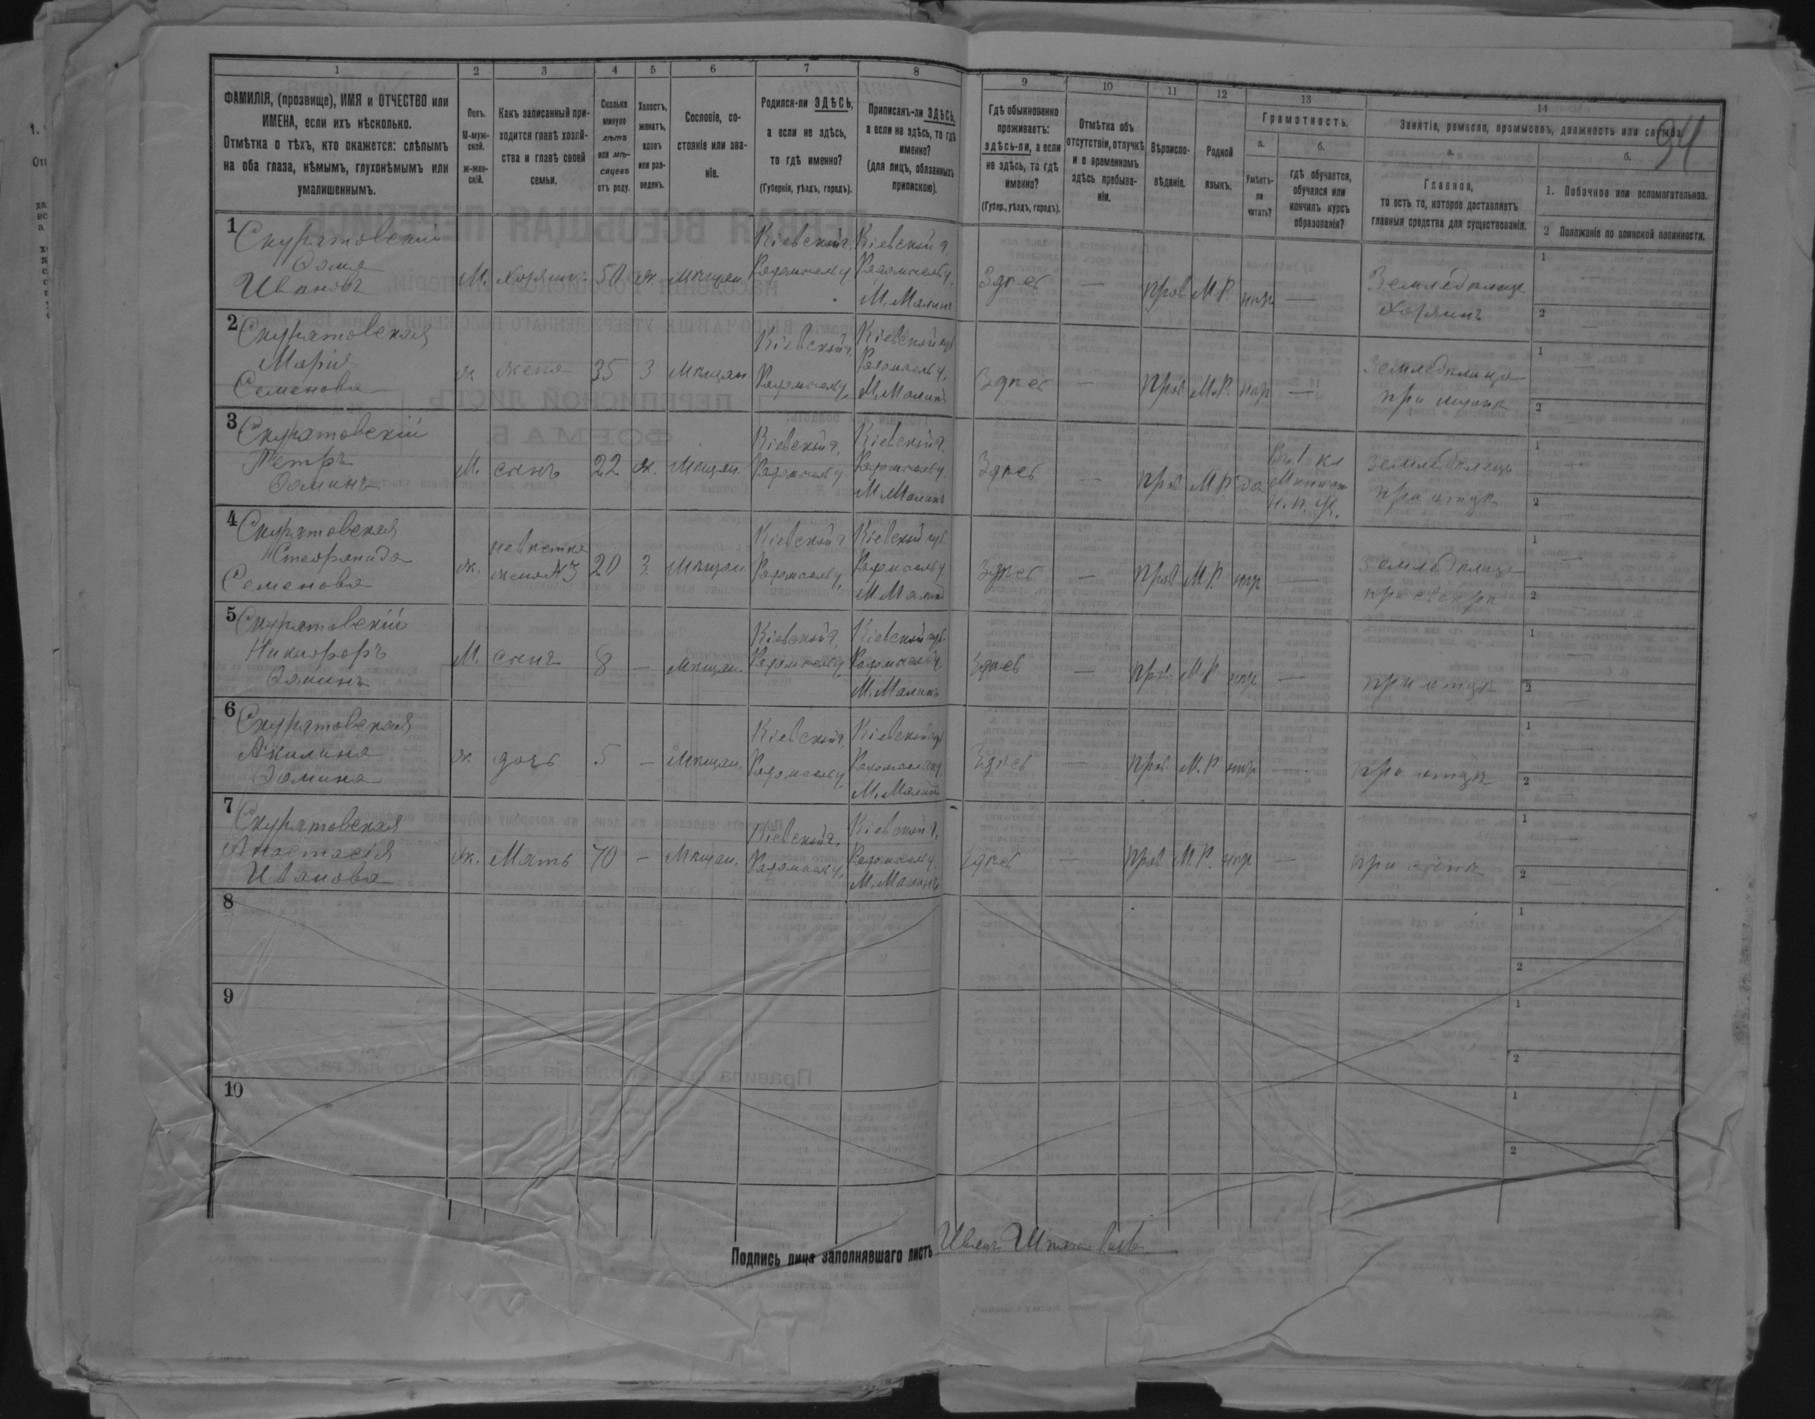 94
1 2 3 4 5 6 7 8 9 10 11 12 13 14
ФАМИЛІЯ, (прозвище), ИМЯ и ОТЧЕСТВО или
ИМЕНА, если ихъ нѣсколько.
Отмѣтка о тѣхъ, кто окажется: слѣпымъ
на оба глаза, нѣмымъ, глухонѣмымъ или
умалишеннымъ.
Полъ.
М-муж-
ской.
ж-жен-
скій.
Какъ записанный при-
ходится главѣ хозяй-
ства и главѣ своей
семьи.
Сколько
минуло
лѣтъ
или мѣ-
сяцевъ
отъ роду.
Холостъ,
женатъ,
вдовъ
или раз-
веденъ.
Сословіе, со-
стояніе или зва-
ніе.
Родился-ли ЗДѢСЬ,
а если не здѣсь,
то гдѣ именно?
(Губернія, уѣздъ, городъ).
Приписанъ-ли ЗДѢСЬ,
а если не здѣсь, то гдѣ
именно?
(для лицъ, обязанныхъ
припискою).
Гдѣ обыкновенно
проживаетъ:
здѣсь-ли, а если
не здѣсь, то гдѣ
именно?
(Губер., уѣздъ, городъ).
Отмѣтка объ
отсутствіи, отлучкѣ
и о временномъ
здѣсь пребыва-
ніи.
Вѣроиспо-
вѣданіе.
Родной
языкъ.
Грамотность.
а.
Умѣетъ-
ли
читать?
б.
гдѣ обучается,
обучался или
кончилъ курсъ
образованія?
Занятіе, ремесло, промыселъ, должность или служба.
а.
Главное,
то есть то, которое доставляетъ
главныя средства для существованія.
б.
1. Побочное или вспомогательное.
2 Положеніе по воинской повинности.
1
Скуратовскій
Фома
Ивановъ
М. хозяинъ 50 ж мѣщан.
Кіевской г.
Радомыслу
Кіевской г.
Радомысльу.
М. Малинъ
Здѣсь — прав М.Р. нѣр —
Земледѣлецъ
хозяинъ
1 —
2 —
2
Скуратовская
Марія
Семенова
ж жена 35 з мѣщан
Кіевской
Радомыслу
Кіевской губ
Радомысльу.
М. Малинъ
Здѣсь — прав М.Р. нѣр —
Земледѣлица
при мужѣ
1 —
2
3
Скуратовскій
Петръ
Фоминъ
М. сынъ 22 ж. мѣщан.
Кіевской г.
Радомысльу
Кіевской г.
Радомысльу
М. Малинъ
Здѣсь — прав М.Р. да
земледѣлецъ
при отцѣ
1 —
2 —
4
Скуратовская
Стефанида
Семенова
ж. невѣстка
жена №3 20 з мѣщан
Кіевской г.
Радомысльу
Кіевской губ
Радомысльу
М. Малинъ
Здѣсь — прав М.Р. нѣр —
земледѣлица
при свекрѣ
1 —
2 —
5
Скуратовскій
Никифоръ
Фоминъ
М. сынъ 8 — мѣщан
Кіевской г.
Радомысльу
Кіевской губ.
Радомысльу.
М. Малинъ
Здѣсь — прав М.Р. нѣр —
при отцѣ
1 —
2 —
6
Скуратовская
Акилина
Фомина
ж. дочь 5 — мѣщан.
Кіевской г.
Радомысльу
Кіевской губ
Радомысльу
М. Малинъ
Здѣсь — прав М.Р. нѣр —
при отцѣ
1 —
2 —
7
Скуратовская
Анастасія
Иванова
ж. Мать 70 — мѣщан.
Кіевской г.
Радомыслу.
Кіевской г.
Радомысльу
М. Малинъ
Здѣсь — прав М.Р. нѣр —
при сынѣ
1 —
2 —
8
1
2
9
1
2
10
1
2
Подпись лица заполнявшаго листъ Иванъ